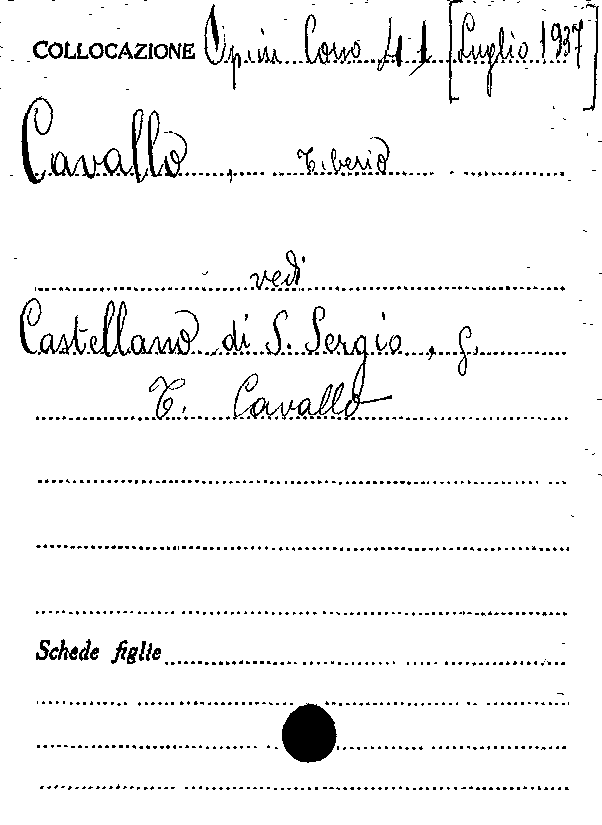 COLLOCAZIONE Opin Cono 41 [Luglio 1937]
Cavallo, Tiberio
vedi
Castellano di S. Sergio, g.
T. Cavallo
Schede figlie